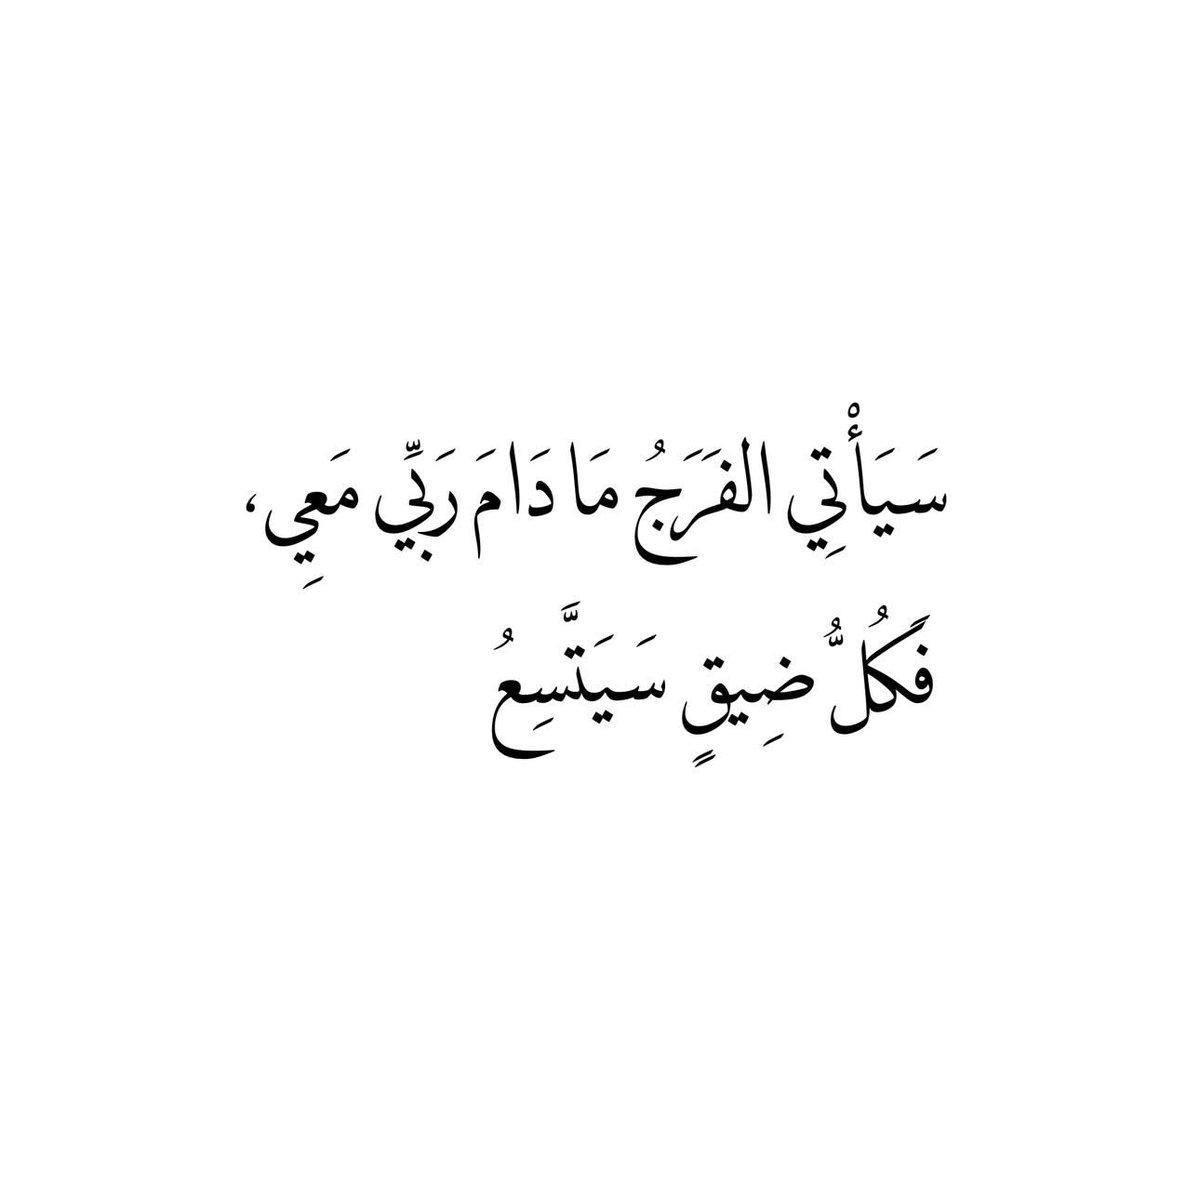 سَيَأْتِي الفَرَجُ مَا دَامَ رَبِّي مَعِي،
فَكُلُّ ضِيقٍ سَيَتَّسِعُ